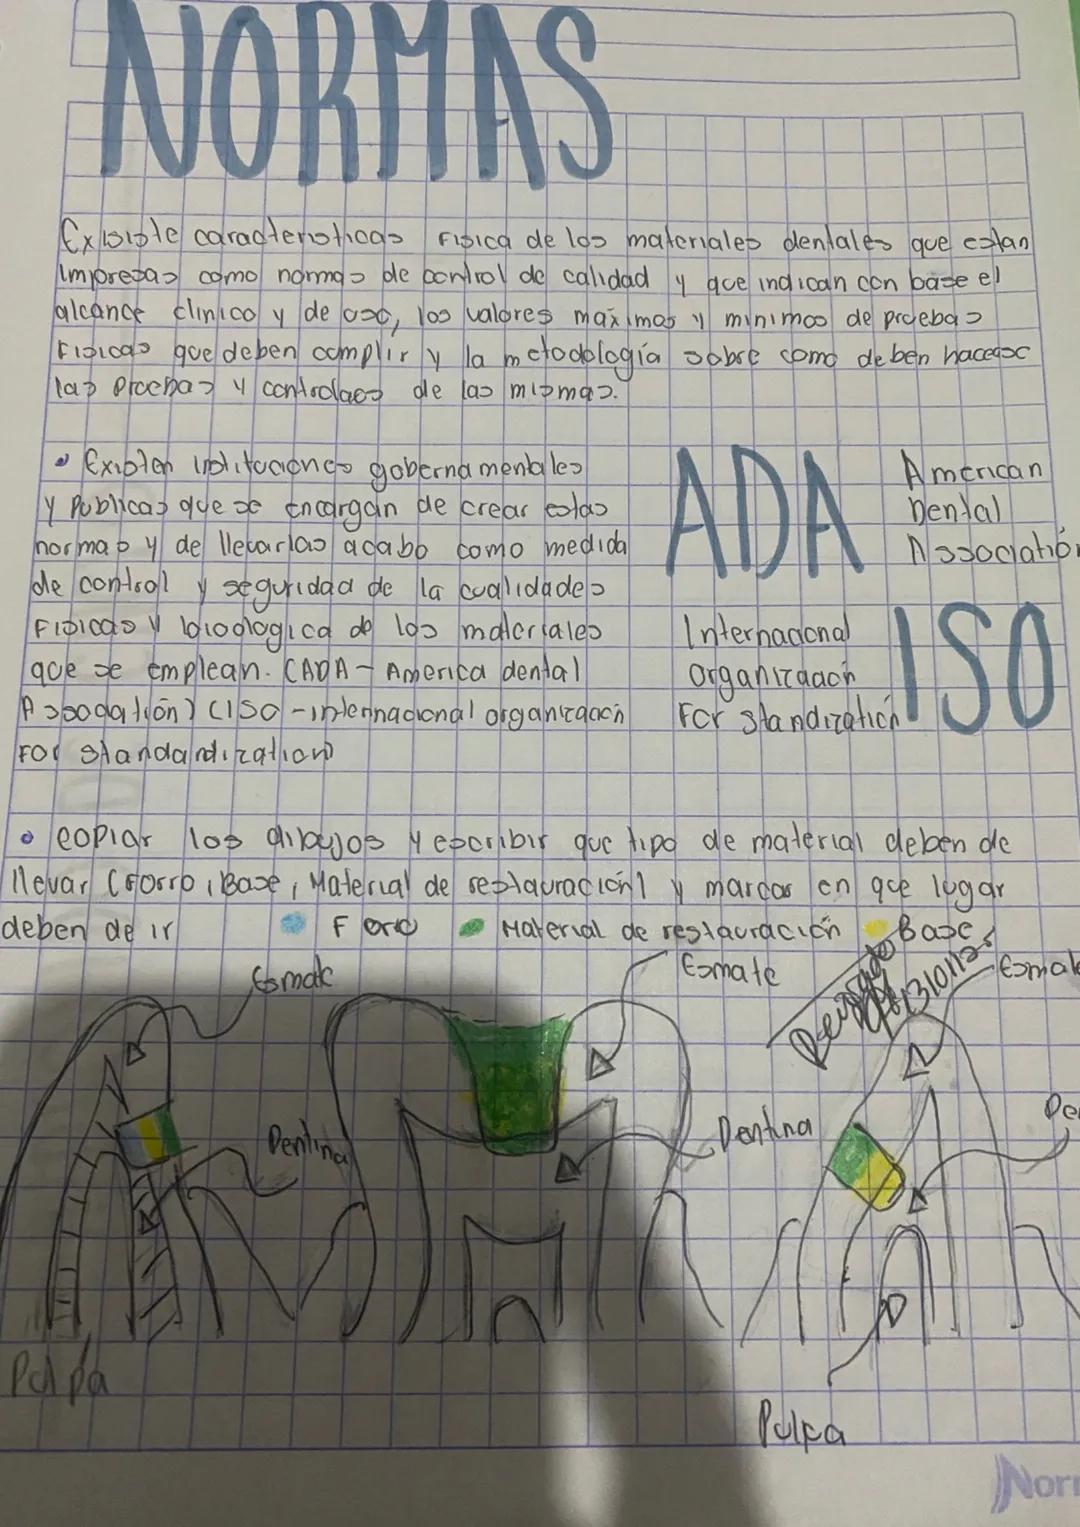 NORMAS
Existe caracteristicas fisica de los materiales dentales que estan
impresas como normas de control de calidad y que indican con base el
alcance clinico y de uso, los valores maximas y minimos de pruebas
Fisicas que deben cumplir y la metodología sobre como deben hacerse
las pruebas y controlaes de las mismas.
• Existen instituciones gobernamentales
y Publicas que se encargan de crear estas
normas y de llevarlas acabo como medida
de control y seguridad de la cualidades
Fisicas y biodlogica de los materiales
que se emplean. (ADA - America dental
Assodation) (ISO - internacional organizacion
For standardization)
ADA
American
Dental
Association
Internacional
organizacion
For standization
ISO
• copiar los dibujos y escribir que tipo de material deben de
llevar (Forro, Base, Material de restauración) y marcar en que lugar
deben de ir Forro Material de restauración Base
Esmalte
Esmate
Revisado
Esmal
Dentina
Dentina
De
Pulpa
Pulpa
Nor